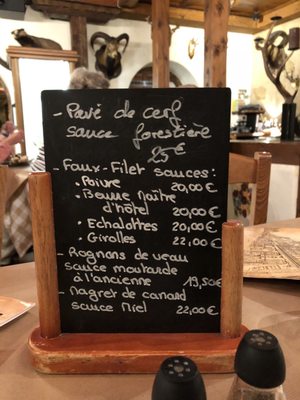 - Pavé de cerf
sauce forestière
25€
- Faux-Filet sauces:
• Poivre 20,00€
• Beurre Maître
d'hôtel 20,00€
• Echalottes 20,00€
• Girolles 22,00€
- Rognons de veau
sauce moutarde
à l'ancienne 19,50€
- Magret de canard
sauce Miel 22,00€